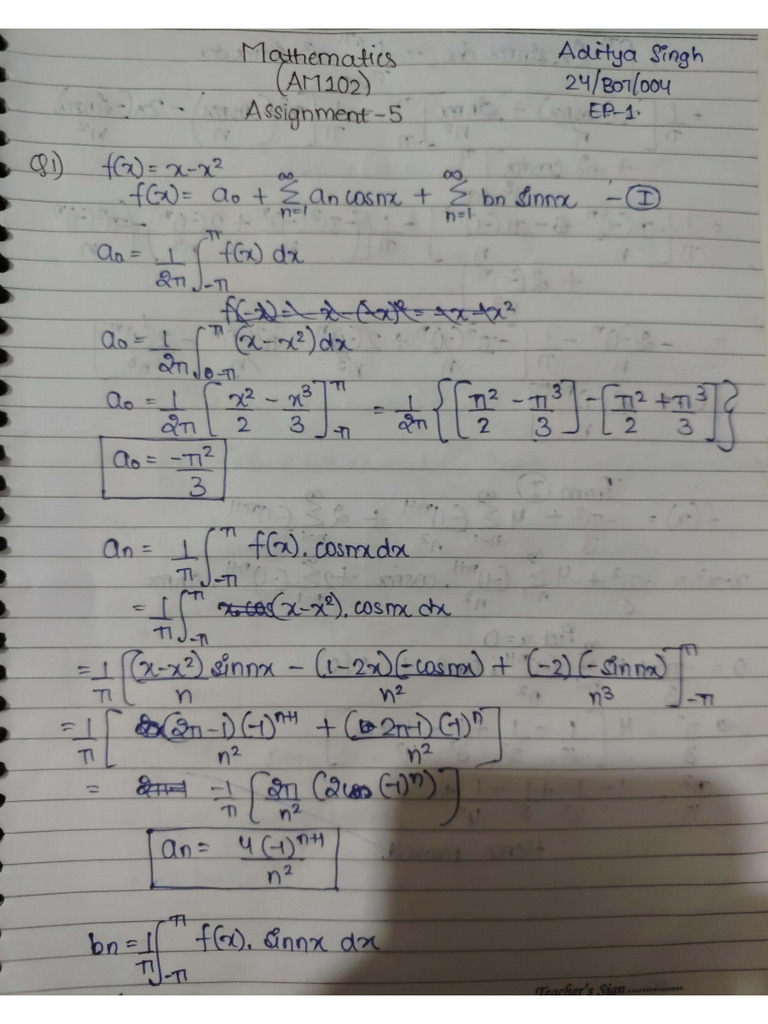 Mathematics
(AM102)
Assignment-5
Aditya Singh
24/B07/004
EP-1.
Q1) f(x) = x-x²
f(x) = a₀ + ∞Σn=1 an cosnx + ∞Σn=1 bn sinnx - Ⓘ
a₀ = 1/2π ∫_-π^π f(x) dx
a₀ = 1/2π ∫_-π^π (x-x²)dx
a₀ = 1/2π [x²/2 - x³/3]_-π^π = 1/2π {[π²/2 - π³/3] - [π²/2 + π³/3]}
a₀ = -π²/3
an = 1/π ∫_-π^π f(x). cosnxdx
= 1/π ∫_-π^π (x-x²). cosnx dx
= 1/π [(x-x²) sinnx/n - (1-2x)(-cosnx)/n² + (-2)(-sinnx)/n³]_-π^π
= 1/π [(2π-1)(-1)^n+1/n² + (-2π-1)(-1)^n/n²]
= -1/π [2π/n² (2(-1)^n)]
an = 4(-1)^n+1/n²
bn = 1/π ∫_-π^π f(x). sinnx dx
Teacher's Sign ...............